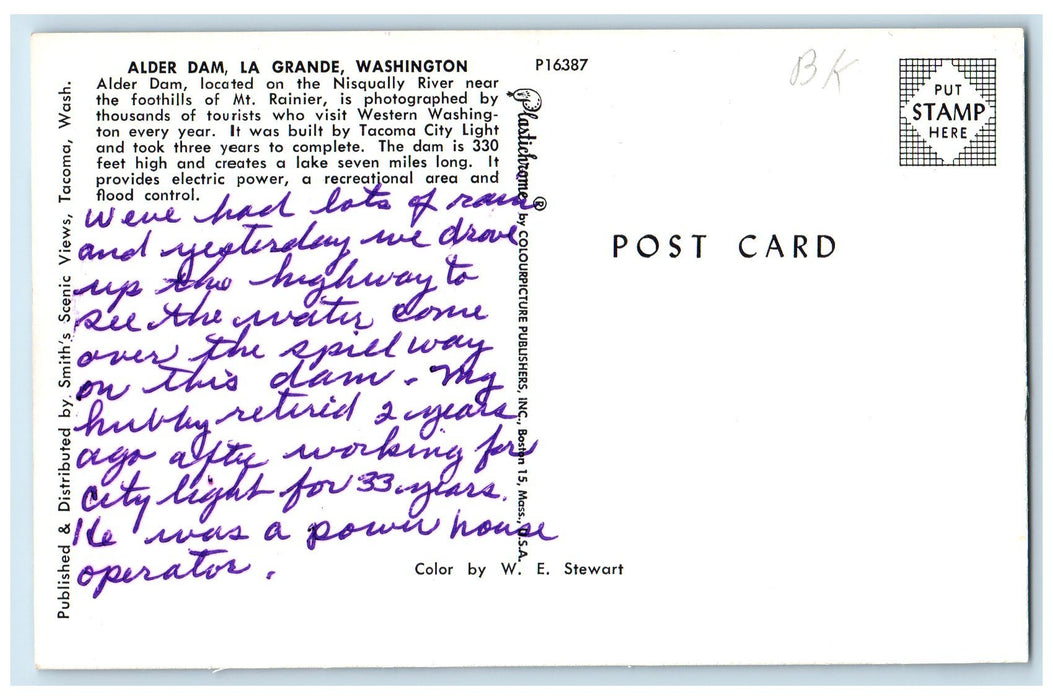 ALDER DAM, LA GRANDE, WASHINGTON
Alder Dam, located on the Nisqually River near
the foothills of Mt. Rainier, is photographed by
thousands of tourists who visit Western Washing-
ton every year. It was built by Tacoma City Light
and took three years to complete. The dam is 330
feet high and creates a lake seven miles long. It
provides electric power, a recreational area and
flood control.
weve had lots of rain
and yesterday we drove
up the highway to
see the water come
over the spill way
on this dam. My
hubby retired 2 years
ago after working for
City light for 33 years.
He was a power house
operator.
Published & Distributed by Smith's Scenic Views, Tacoma, Wash.
P16387
Plastichrome® by COLOURPICTURE PUBLISHERS, INC., Boston 15, Mass., U.S.A.
Color by W. E. Stewart
POST CARD
BK
PUT
STAMP
HERE